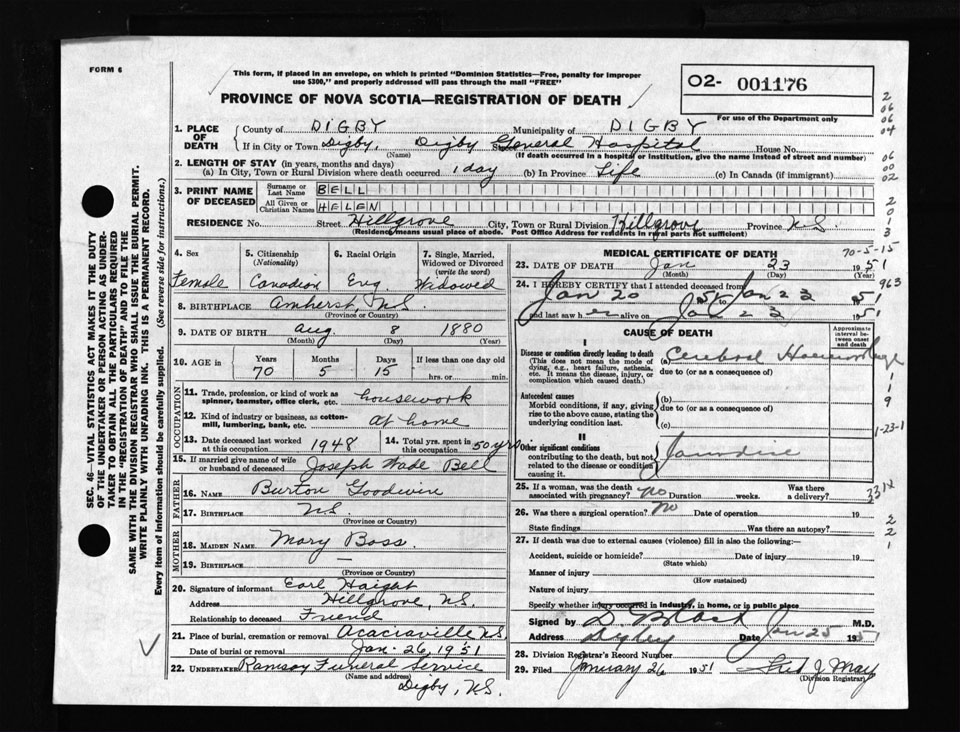 FORM 6
This form, if placed in an envelope, on which is printed "Dominion Statistics—Free, penalty for improper
use $300," and properly addressed will pass through the mail "FREE"
PROVINCE OF NOVA SCOTIA—REGISTRATION OF DEATH
O2- 001176
For use of the Department only
1. PLACE OF DEATH
County of DIGBY Municipality of DIGBY
If in City or Town Digby, Digby General Hospital House No.
(Name) Street (If death occurred in a hospital or institution, give the name instead of street and number)
2. LENGTH OF STAY (in years, months and days)
(a) In City, Town or Rural Division where death occurred 1 day (b) In Province Life (c) In Canada (if immigrant)
3. PRINT NAME OF DECEASED
Surname or Last Name BELL
All Given or Christian Names HELEN
RESIDENCE No. Street Hillgrove City, Town or Rural Division Hillgrove Province N.S.
(Residence means usual place of abode. Post Office Address for residents in rural parts not sufficient)
4. Sex
Female
5. Citizenship
(Nationality)
Canadian
6. Racial Origin
Eng.
7. Single, Married, Widowed or Divorced
(write the word)
Widowed
8. BIRTHPLACE Amherst, N.S.
(Province or Country)
9. DATE OF BIRTH Aug. 8 1880
(Month) (Day) (Year)
10. AGE in Years Months Days If less than one day old
70 5 15 hrs. or min.
OCCUPATION
11. Trade, profession, or kind of work as spinner, teamster, office clerk, etc. housework
12. Kind of industry or business, as cotton-mill, lumbering, bank, etc. at home
13. Date deceased last worked at this occupation 1948
14. Total yrs. spent in this occupation 50 yrs
15. If married give name of wife or husband of deceased Joseph Wade Bell
FATHER
16. NAME Burton Goodwin
17. BIRTHPLACE N.S.
(Province or Country)
MOTHER
18. MAIDEN NAME Mary Boss.
19. BIRTHPLACE —
(Province or Country)
20. Signature of informant Earl Haight
Address Hillgrove, N.S.
Relationship to deceased Friend
21. Place of burial, cremation or removal Acaciaville N.S.
Date of burial or removal Jan. 26, 1951
22. UNDERTAKER Ramsay Funeral Service
(Name and address)
Digby, N.S.
MEDICAL CERTIFICATE OF DEATH
70-5-15
23. DATE OF DEATH Jan 23 1951
(Month) (Day)
24. I HEREBY CERTIFY that I attended deceased from
Jan 20 1951 to Jan 23 1951
and last saw her alive on Jan 23 1951
963
CAUSE OF DEATH
Approximate interval between onset and death
I
Disease or condition directly leading to death
(This does not mean the mode of dying, e.g., heart failure, asthenia, etc. It means the disease, injury, or complication which caused death.)
(a) Cerebral Haemorrhage
due to (or as a consequence of)
Antecedent causes
Morbid conditions, if any, giving rise to the above cause, stating the underlying condition last.
(b)
due to (or as a consequence of)
(c)
1-23-1
II
Other significant conditions
contributing to the death, but not related to the disease or condition causing it.
Jaundice
25. If a woman, was the death associated with pregnancy? no Duration weeks. Was there a delivery?
26. Was there a surgical operation? No Date of operation 19
State findings Was there an autopsy?
27. If death was due to external causes (violence) fill in also the following:—
Accident, suicide or homicide? Date of injury 19
(State which)
Manner of injury
(How sustained)
Nature of injury
Specify whether injury occurred in industry, in home, or in public place
Signed by D. Black M.D.
Address Digby Date Jan 25 1951
28. Division Registrar's Record Number
29. Filed January 26 1951 Fred J May
(Division Registrar)
SEC. 46—VITAL STATISTICS ACT MAKES IT THE DUTY
OF THE UNDERTAKER OR PERSON ACTING AS UNDER-
TAKER TO OBTAIN ALL THE PARTICULARS REQUIRED
IN THE "REGISTRATION OF DEATH" AND TO FILE THE
SAME WITH THE DIVISION REGISTRAR WHO SHALL ISSUE THE BURIAL PERMIT.
WRITE PLAINLY WITH UNFADING INK. THIS IS A PERMANENT RECORD.
Every item of information should be carefully supplied. (See reverse side for instructions.)
2
06
06
04
06
00
02
2
0
1
3
1
1
9
2
2
1